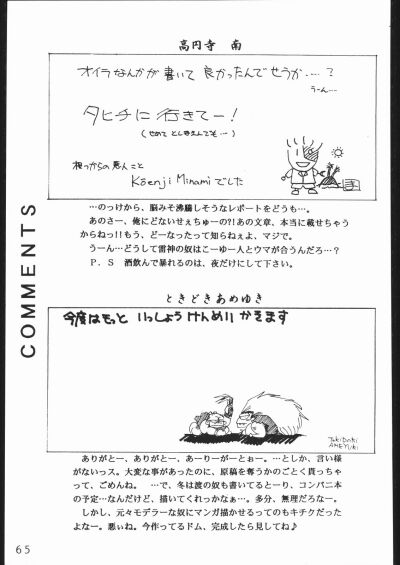 高円寺 南
オイラなんかが書いて良かったんでせうか…‥?
うーん…
タヒチに行きてー!
根っからの悪人こと
Kōenji Minamiでした
…のっけから、脳みそ沸騰しそうなレポートをどうも…。
あのさー、俺にどないせぇちゅーの?!あの文章、本当に載せちゃう
からねっ!!もう、どーなったって知らねぇよ、マジで。
うーん…どうして雷神の奴はこーゆー人とウマが合うんだろ…?
P.S 酒飲んで暴れるのは、夜だけにして下さい。
COMMENTS
ときどきあめゆき
今度はもっと いっしょうけんめい かきます
TokiDoki
AMEYUKI
ありがとー、ありがとー、あーりーがーとぉー。…としか、言い様
がないっス。大変な事があったのに、原稿を奪うかのごとく貰っちゃ
って、ごめんね。 …で、冬は渡の奴も書いてるとーり、コンパニ本
の予定…なんだけど、描いてくれっかなぁ…。多分、無理だろなー。
しかし、元々モデラーな奴にマンガ描かせるってのもキチクだった
よなー。悪いね。今作ってるドム、完成したら見してね♪
65